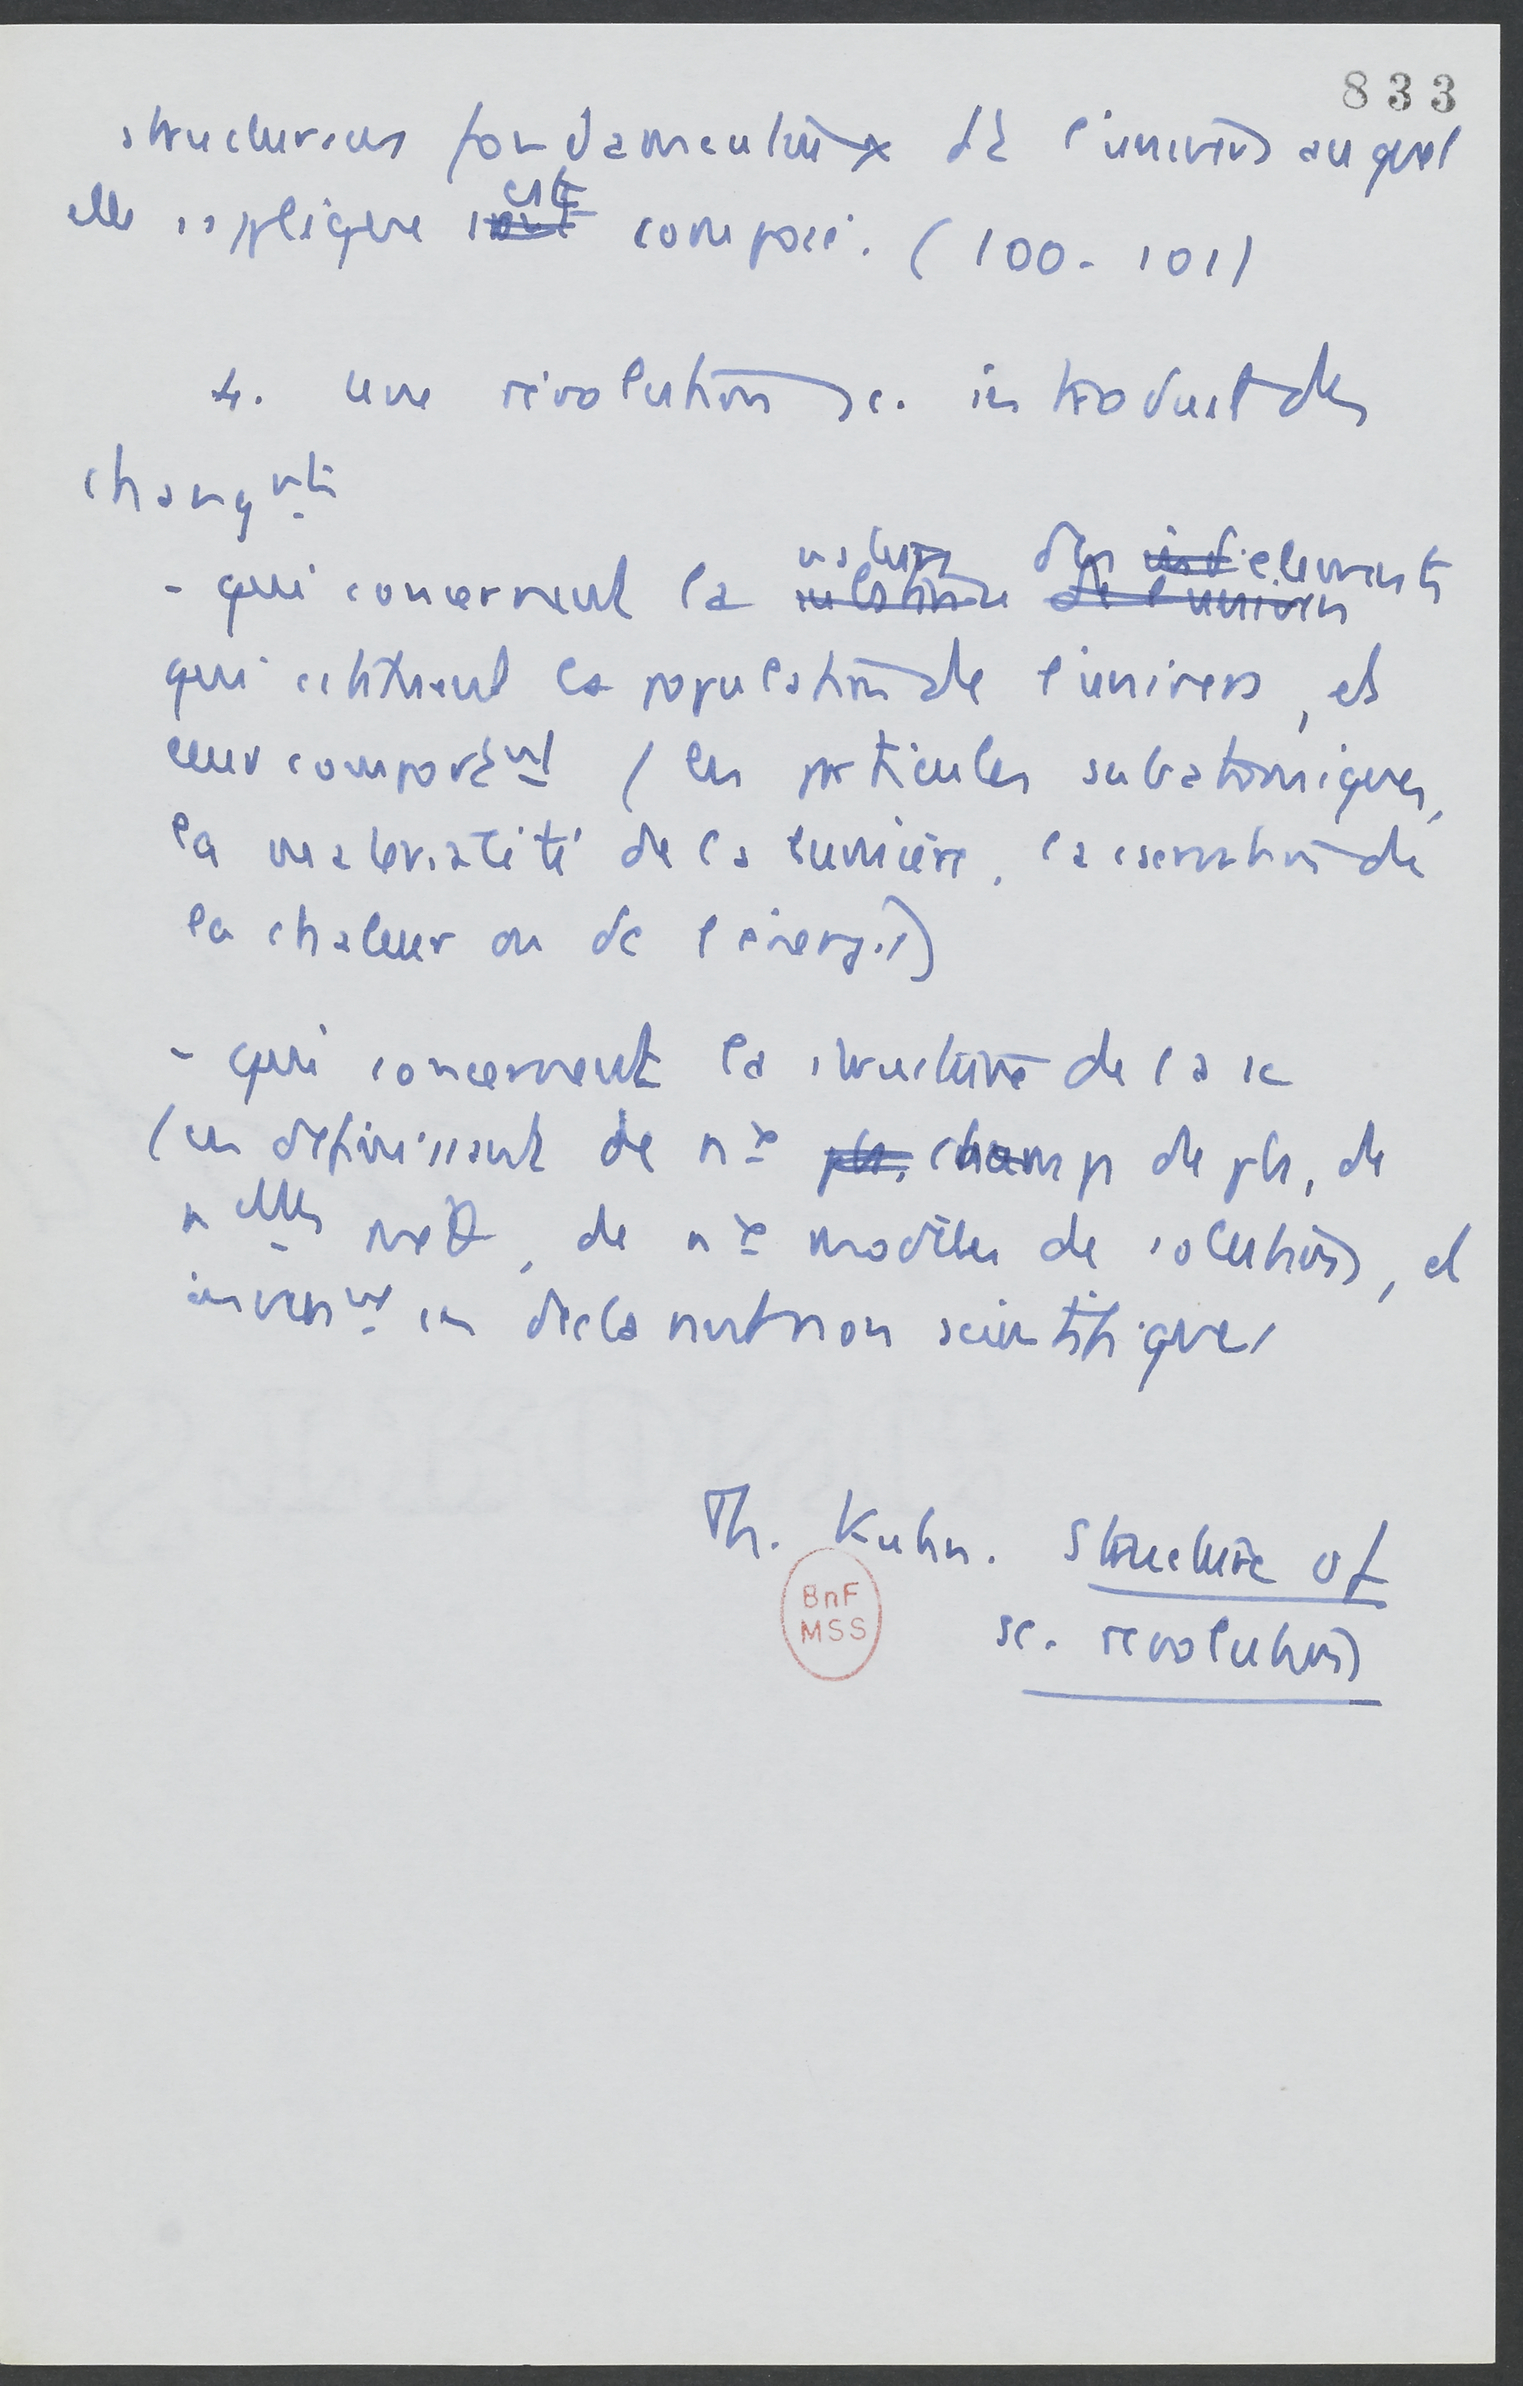 833
structuraux fondamentaux de l'univers auquel
elle s'applique sont est composé. (100-101)
4. une révolution sc. introduit des
changmts
nature des ind elements
- qui concernent la substance de l'univers
qui cstituent la population de l'univers, et
leur comportmt (les particules subatomiques,
la matérialité de la lumière, la cservation de
la chaleur ou de l'énergie)
- qui concernent la structure de la sc
(en définissant de nx pb. champs de pb, de
nelles de nx modèles de solutions, et
scientifique)
Th. Kuhn. Structure of
BnF
MSS
sc. revolutions